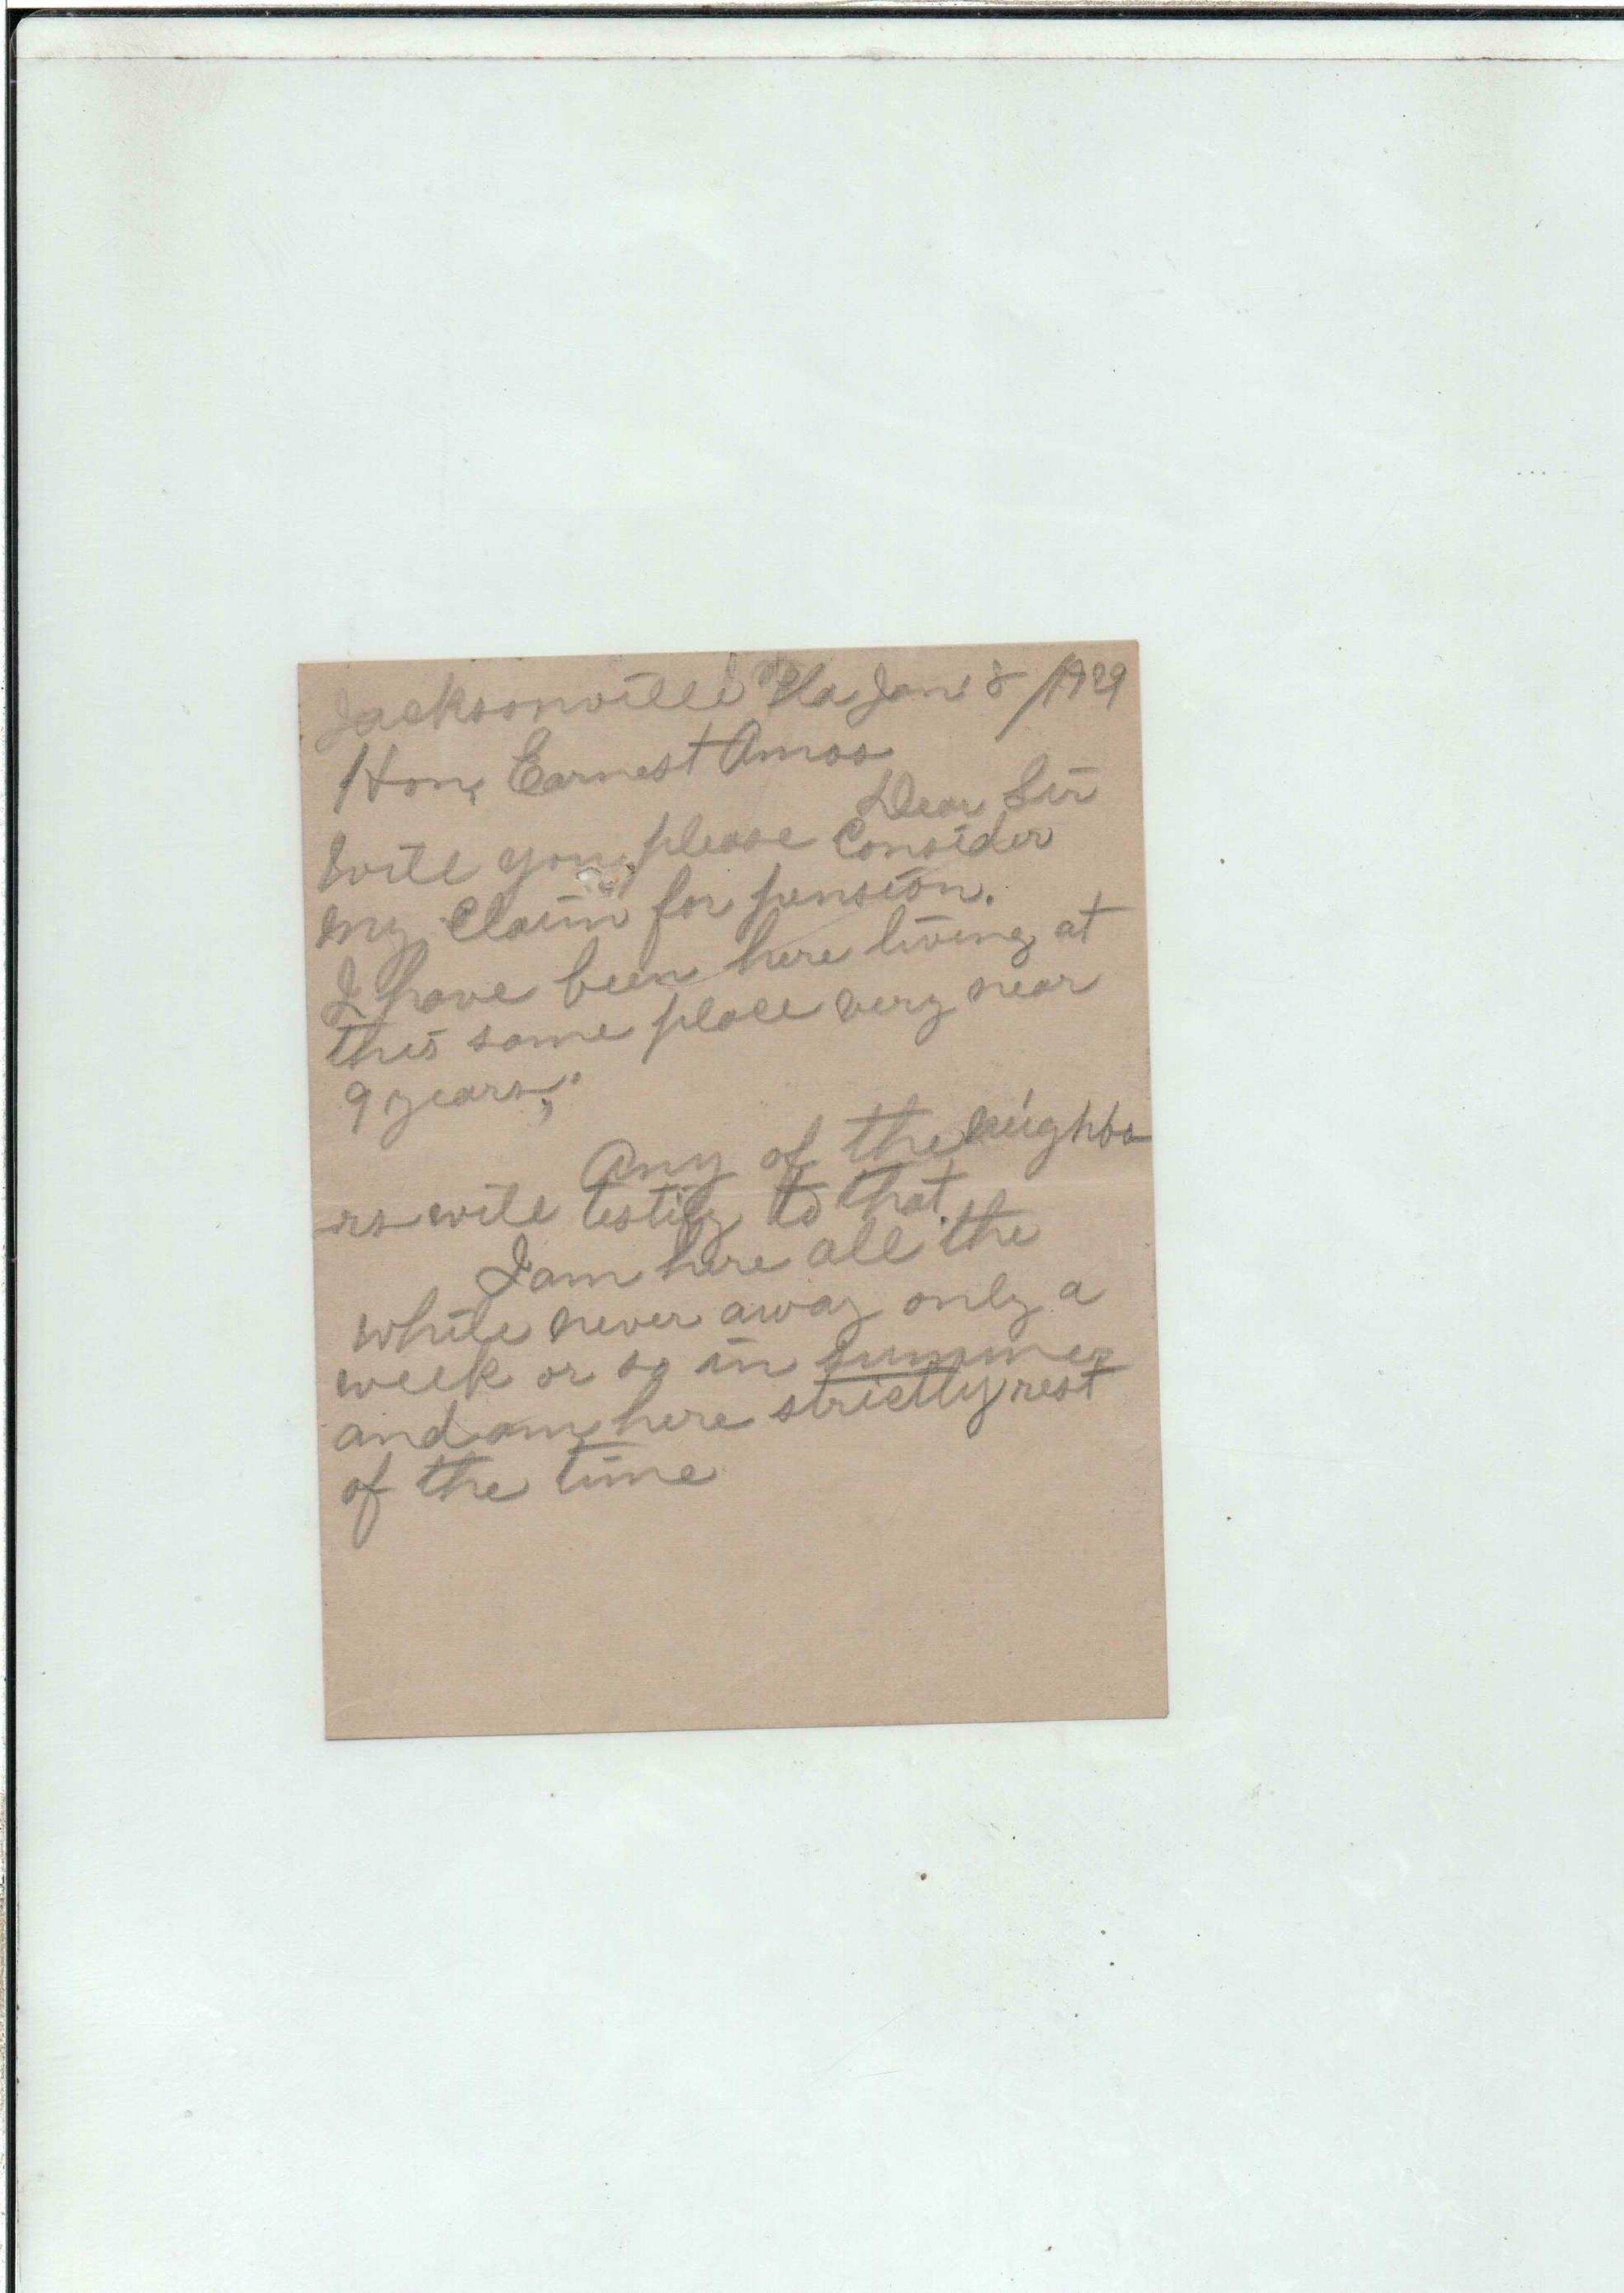 Jacksonville Fla Jan 8/1929
Hon, Earnest Amos
Dear Sir
Will you please Consider
my Claim for pension.
I have been here living at
this same place very near
9 years,
Any of the neighbo
rs will testify to that.
I am here all the
while never away only a
week or so in summer
and am here strictly rest
of the time